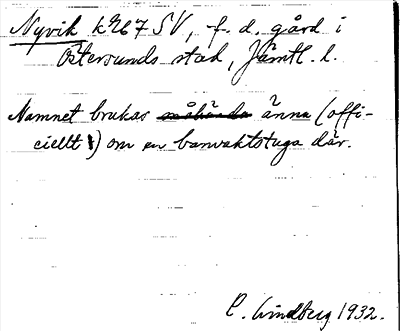 Nyvik k 767 SV, f. d. gård i
Östersunds stad, Jämtl. l.
Namnet brukas änna (offi-
ciellt) om en banvaktstuga där.
C. Lindberg 1932.